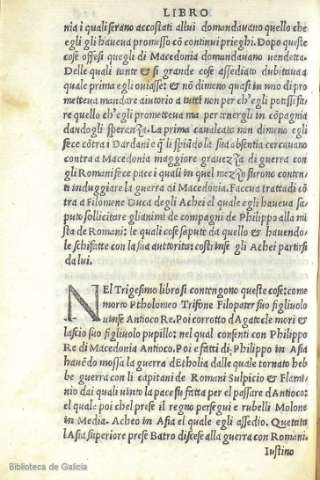 LIBRO
nia i quali serano accostati allui domandavano quello che
egli gli haveva promesso cō continui prieghi. Dopo queste
cose offesi quegli di Macedonia domandavano vendetta.
Delle quali tante & si grande cose assediato dubitava a
quale prima egli oviasse: & nō dimeno quasi in uno di pro
metteva mandare aiutorio a tutti non per ch'egli potessi fa
re quello ch'egli prometteva ma per avergli in cōpagnia
dandogli sperenza. La prima cavalcato non dimeno egli
fece cōtra i Dardani e q̄lli spiādo la sua absentia cercavano
contra a Macedonia maggiore gravezza di guerra con
gli Romani fece pace i quali in quel mezo furono conten
ti induggiare la guerra di Macedonia. Faccua trattadi cō
tra a Filomene Duca degli Achei el quale egli haveva sa
puto sollicitare gli animi de compagni de Philippo alla mi
sta de Romani: le quali cose sapute da quello & havendo
le schifatte con la sua autorita: costrinse gli Achei partirsi
da lui.
NEl Trigesimo libro si contengono queste cose: come
morto Ptholomeo Trifone Filopater suo figliuolo
vinse Antioco Re. Poi corrotto d'Agatcle mori &
lascio suo figliuolo pupillo: nel qual consenti con Philippo
Re di Macedonia Antioco. Poi e fatti di Philippo in Asia
havēdo mossa la guerra d'Etholia dalle quale tornato heb
be guerra con li capitani de Romani Sulpicio & Flami
nio dai quali vinto la pace fu fatta per el passare d'Antioco:
el quale poi chel prese il regno persegui e rubelli Molone
in Media. Acheo in Asia el quale egli assedio. Quetata
l'Asia superiore prese Batro discese alla guerra con Romani.
Iustino
Biblioteca de Galicia